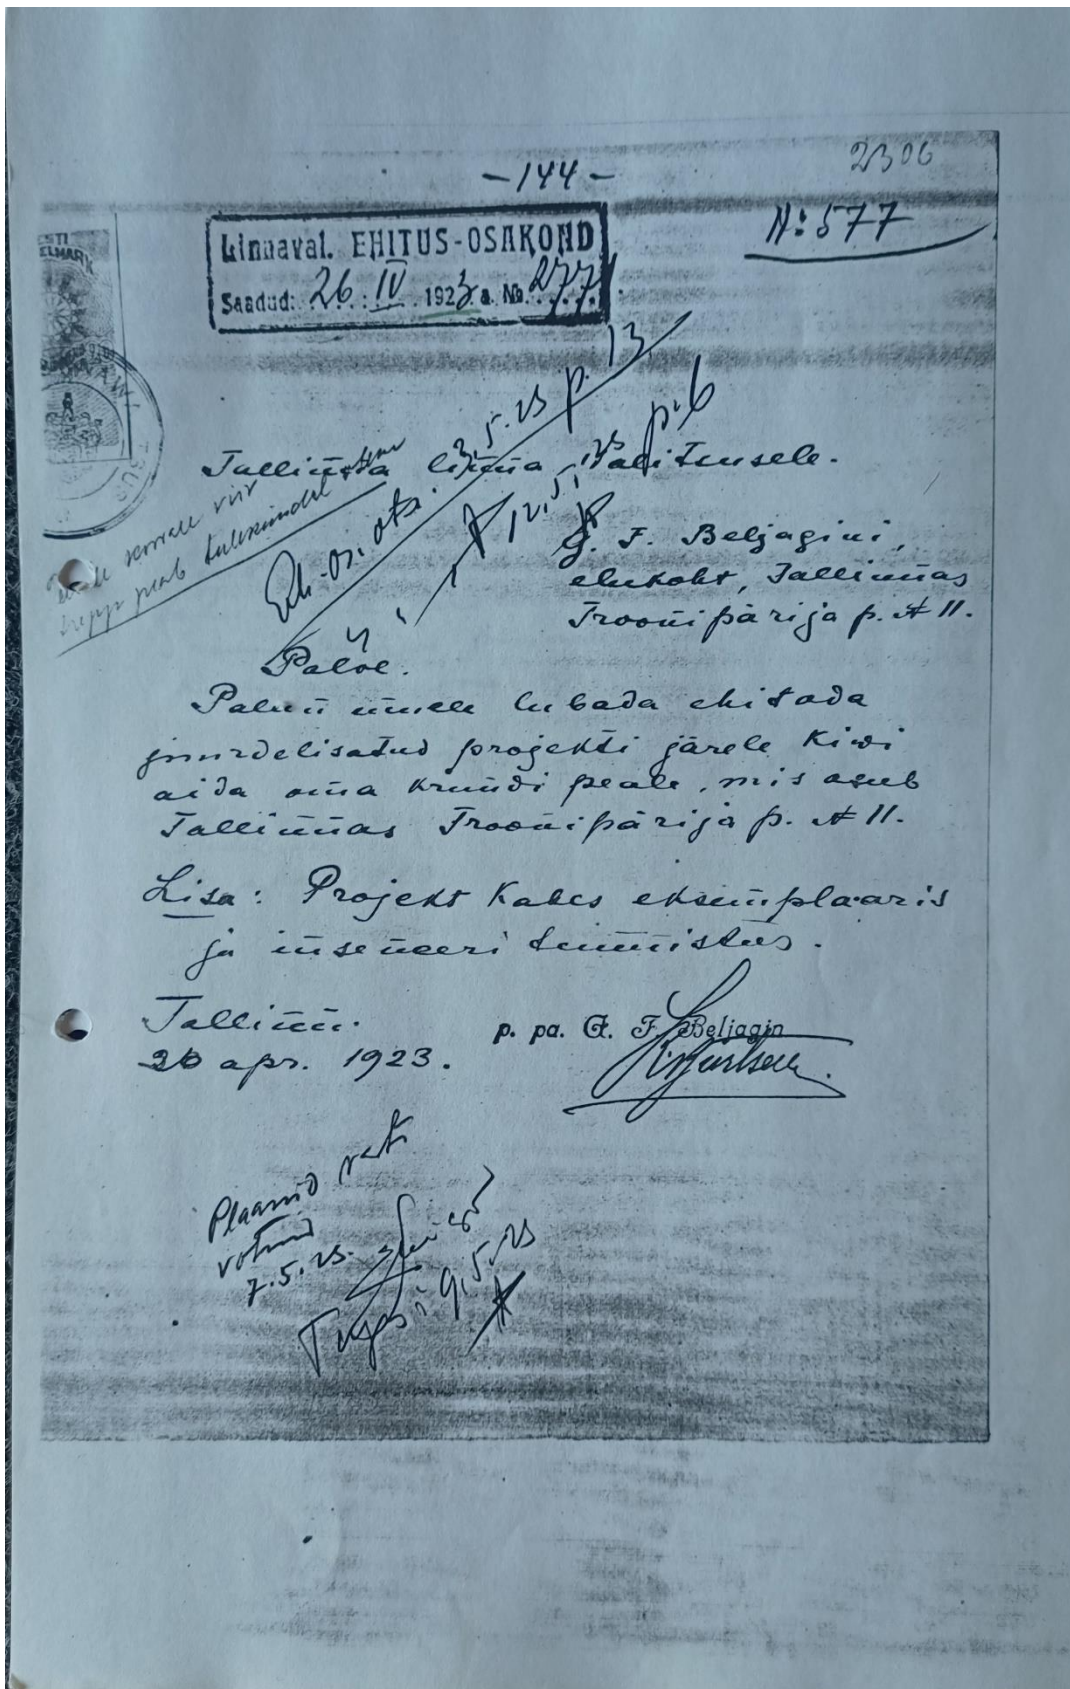 2306
- 144 -
N: 577
Linnaval. EHITUS-OSAKOND
Saadud: 26. IV. 1923 a. No. 2771.
EESTI
Tallinna linna Valitsusele.
3.5.23 p. 13
12.5.23 p. 6
Eh.-os. ots.
trepp peab tulekindel
G. F. Beljagini,
elukoht, Tallinnas
Troonipärija p. № 11.
Palve.
Palun minule lubada ehitada
juurdelisatud projekti järele Kiwi
aida oma krundi peale, mis asub
Tallinnas Troonipärija p. № 11.
Lisa: Projekt Kahes eksemplaaris
ja inseneeri tunnistus.
Tallinn.
26 apr. 1923.
p. pa. G. F. Beljagin
Plaanid
võtnud
7.5.23.
Tagasi 9.5.23